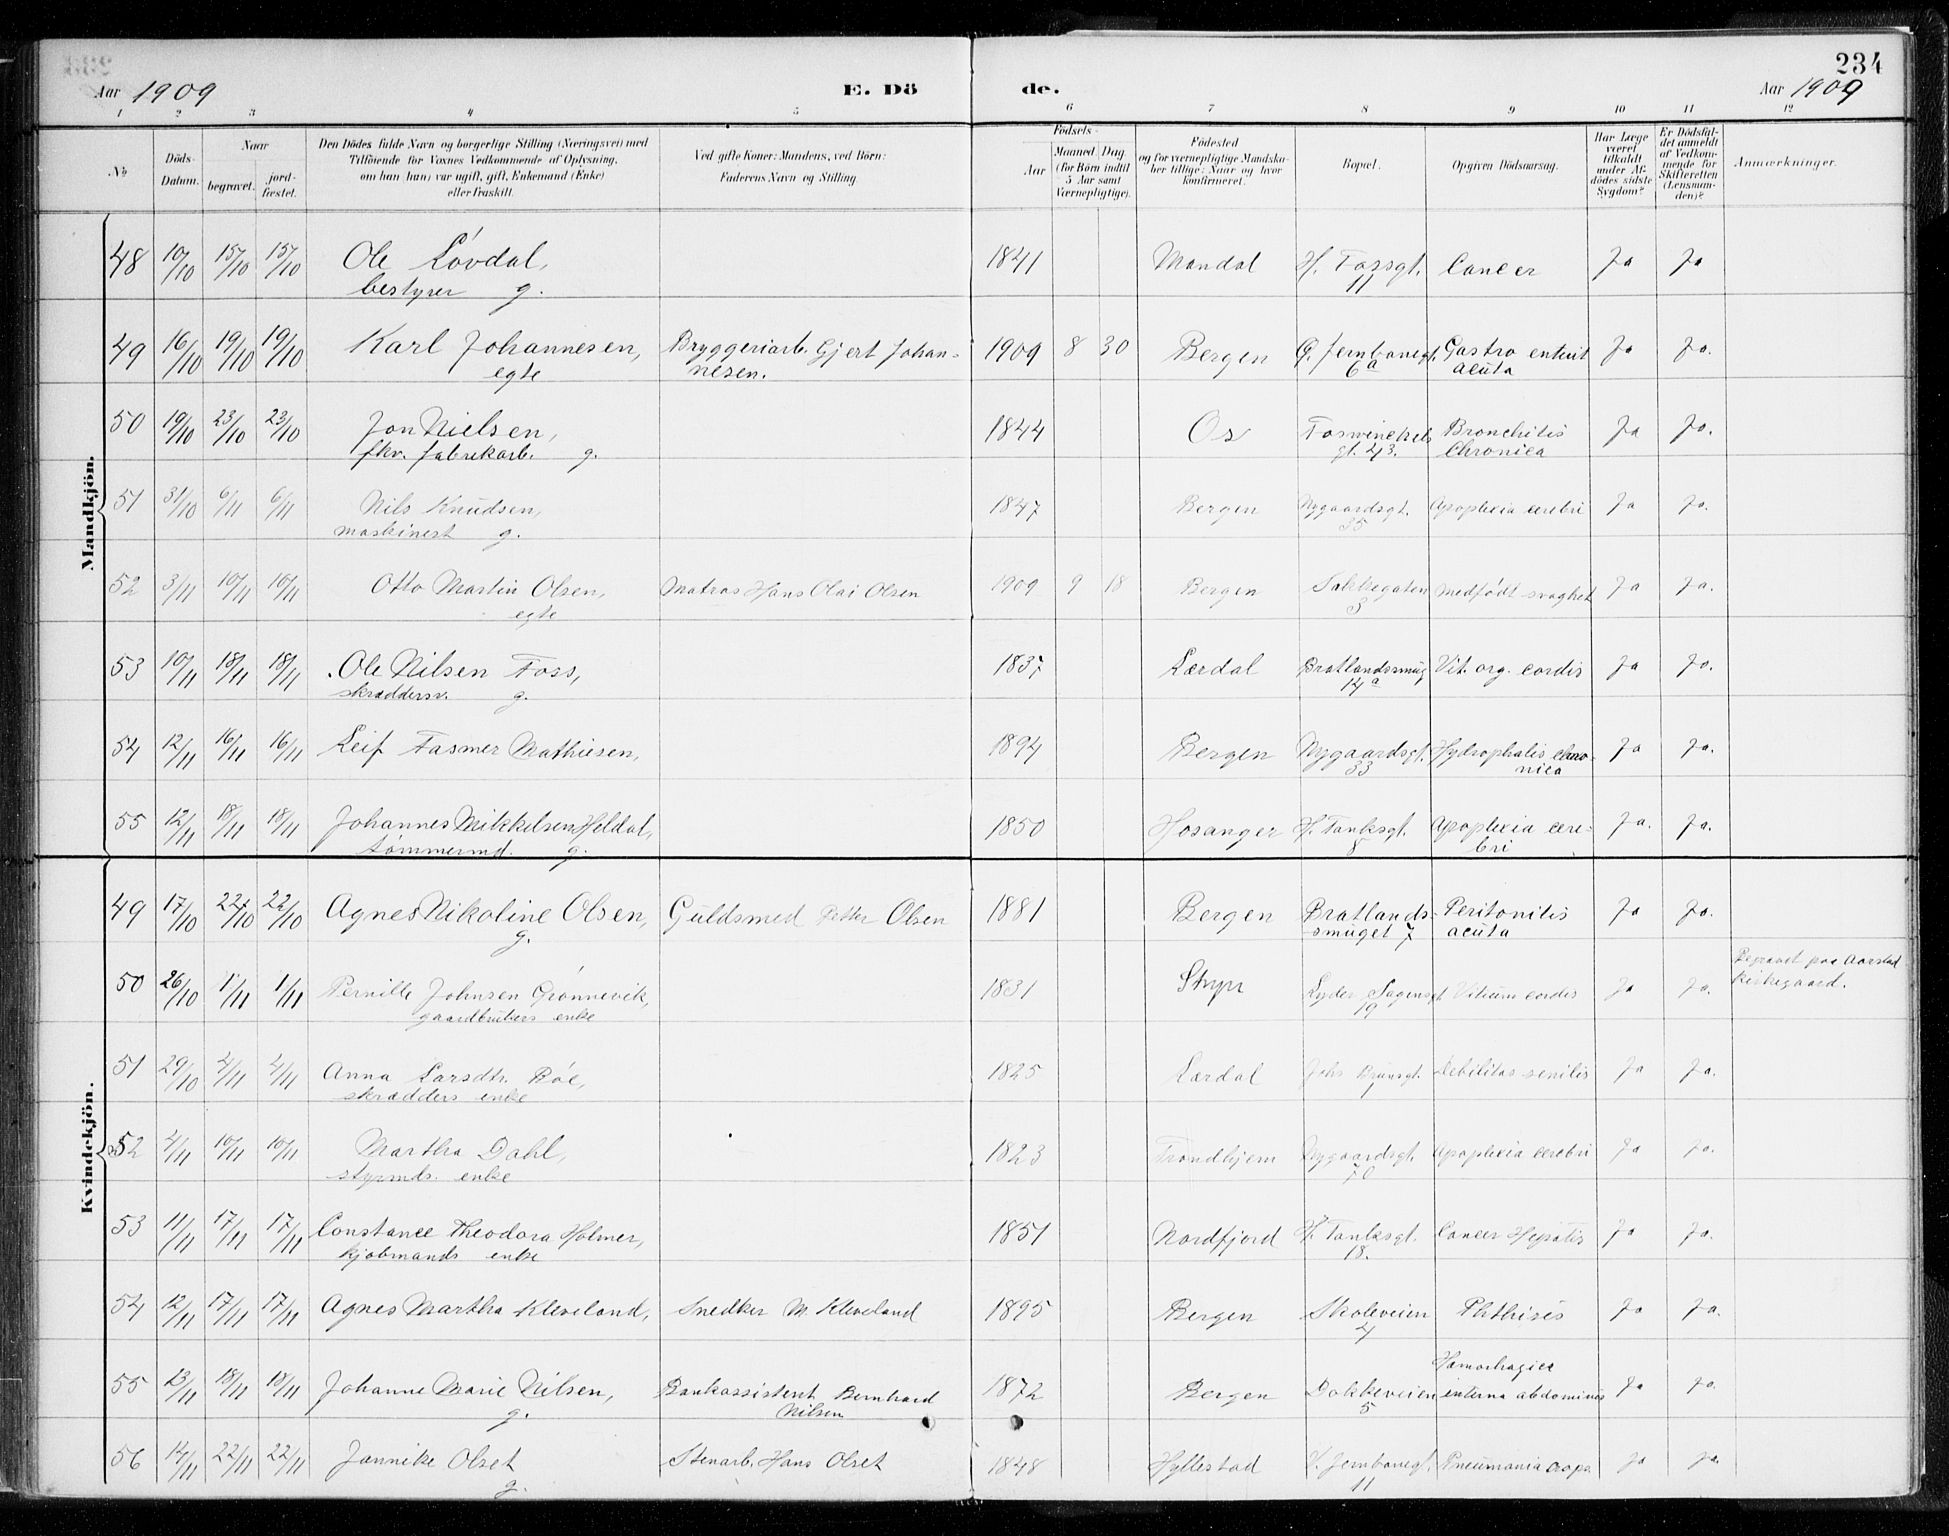 234
Aar 1909 E. Dö de. Aar 1909
1 2 3 4 5 6 7 8 9 10 11 12
No
Döds-Datum.
Naar
begravet.
jord-fæstet.
Den Dödes fulde Navn og borgerlige Stilling (Næringsvei) med
Tilföiende for Voxnes Vedkommende af Oplysning,
om han (hun) var ugift, gift, Enkemand (Enke)
eller fraskilt.
Ved gifte Koner: Mandens, ved Börn:
Faderens Navn og Stilling.
Födsels-
Aar Maaned Dag
(for Börn indtil
5 Aar samt
Værnepligtige).
Födested
og for værnepligtige Mandska-
ber tillige: Naar og hvor
konfirmeret.
Bopæl.
Opgiven Dödsaarsag.
Har Læge
været
tilkaldt
under Af-
dödes sidste
Sygdom?
Er Dödsfal-
det anmeldt
af Vedkom-
mende for
Skifteretten
(Lensman-
den)?
Anmærkninger.
Mandkjön.
48 10/10 15/10 15/10 Ole Lövdal, 1841 Mandal H. Fossgt. Cancer Ja Ja
bestyrer g. 11
49 16/10 19/10 19/10 Karl Johannesen, Bryggeriarb. Gjert Johan- 1909 8 30 Bergen G. Jernbanegt. Gastro enterit Ja Ja.
egte nesen. 6a acuta
50 19/10 23/10 23/10 Jon Nielsen, 1844 Os Foswinckels Bronchitis Ja Ja.
fhv. fabrekarb. g. gt. 43. Chronica
51 31/10 6/11 6/11 Nils Knudsen, 1847 Bergen Nygaardsgt. Apoplexia cerebri Ja Ja.
maskinest g. 35
52 3/11 10/11 10/11 Otto Martin Olsen, Matros Hans Olai Olsen 1909 9 18 Bergen medfödt svaghet Ja Ja.
egte 3
53 10/11 18/11 18/11 Ole Nilsen Foss, 1837 Lærdal Bratlandssmug Vit. org. cordis Ja Ja.
skræddersv. g. 14a
54 12/11 16/11 16/11 Leif Fasmer Mathiesen, 1894 Bergen Nygaardsgt. Hydrophalis chro- Ja Ja.
33 nica
55 12/11 18/11 18/11 Johannes Mikkelsen Heldal, 1850 Hosanger H. Tanksgt. Apoplexia cere- Ja. Ja.
tömmermd. g. 8 bri
Kvindekjön.
49 17/10 22/10 22/10 Agnes Nikoline Olsen, Guldsmed Petter Olsen 1881 Bergen Bratlands- Peritonitis Ja Ja.
g. smuget 7 acuta
50 26/10 1/11 1/11 Pernille Johnsen Grönnevik, 1831 Stryn Lyder Sagensgt Vitium cordis Ja Ja. Begravet paa Aarstad
gaardbrukers enke 19 kirkegaard.
51 29/10 4/11 4/11 Anna Larsdtr. Böe, 1825 Lærdal Johs Brunsgt. Debilitas senilis Ja Ja.
skrædders enke 7
52 4/11 10/11 10/11 Martha Dahl, 1823 Trondhjem Nygaardsgt. Apoplexia cerebri Ja Ja.
styrmds. enke 70
53 11/11 17/11 17/11 Constance Theodora Holmer, 1851 Nordfjord H. Tanksgt. Cancer Hepatis Ja Ja.
kjöbmands enke 18.
54 12/11 17/11 17/11 Agnes Martha Kleveland, Snedker M. Kleveland 1895 Bergen Skoleveien Phthisis Ja Ja.
4
55 13/11 18/11 18/11 Johanne Marie Nilsen, Bankassistent Bernhard 1872 Bergen Dokkeveien Hæmorhagiee interna abdominis Ja Ja.
g. Nilsen 5
56 14/11 22/11 22/11 Jannike Olset Stenarb. Hans Olset 1848 Hyllestad V. Jernbanegt. Pneumonia crops. Ja Ja.
g. 11